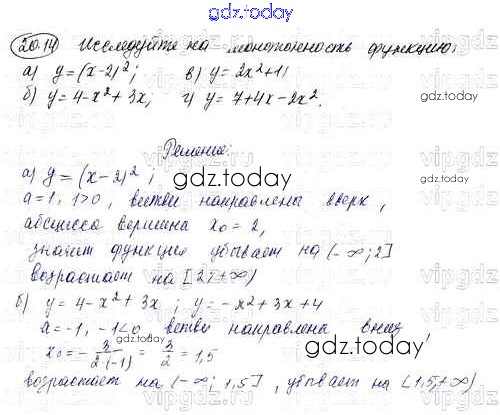 gdz.today
20.14 Исследуйте на монотонность функцию:
а) y=(x-2)²; в) y=2x²+1;
б) y=4-x²+3x; г) y=7+4x-2x².
gdz.today
Решение:
а) y=(x-2)²;
gdz.today
a=1, 1>0, ветви направлены вверх,
абсцисса вершина x₀=2,
значит функция убывает на (-∞;2]
возрастает на [2;+∞)
б) y=4-x²+3x; y=-x²+3x+4
a=-1, -1<0 ветви направлена вниз
x₀=-3/2·(-1)=3/2=1,5
gdz.today
возрастает на (-∞;1,5], убывает на [1,5;+∞)